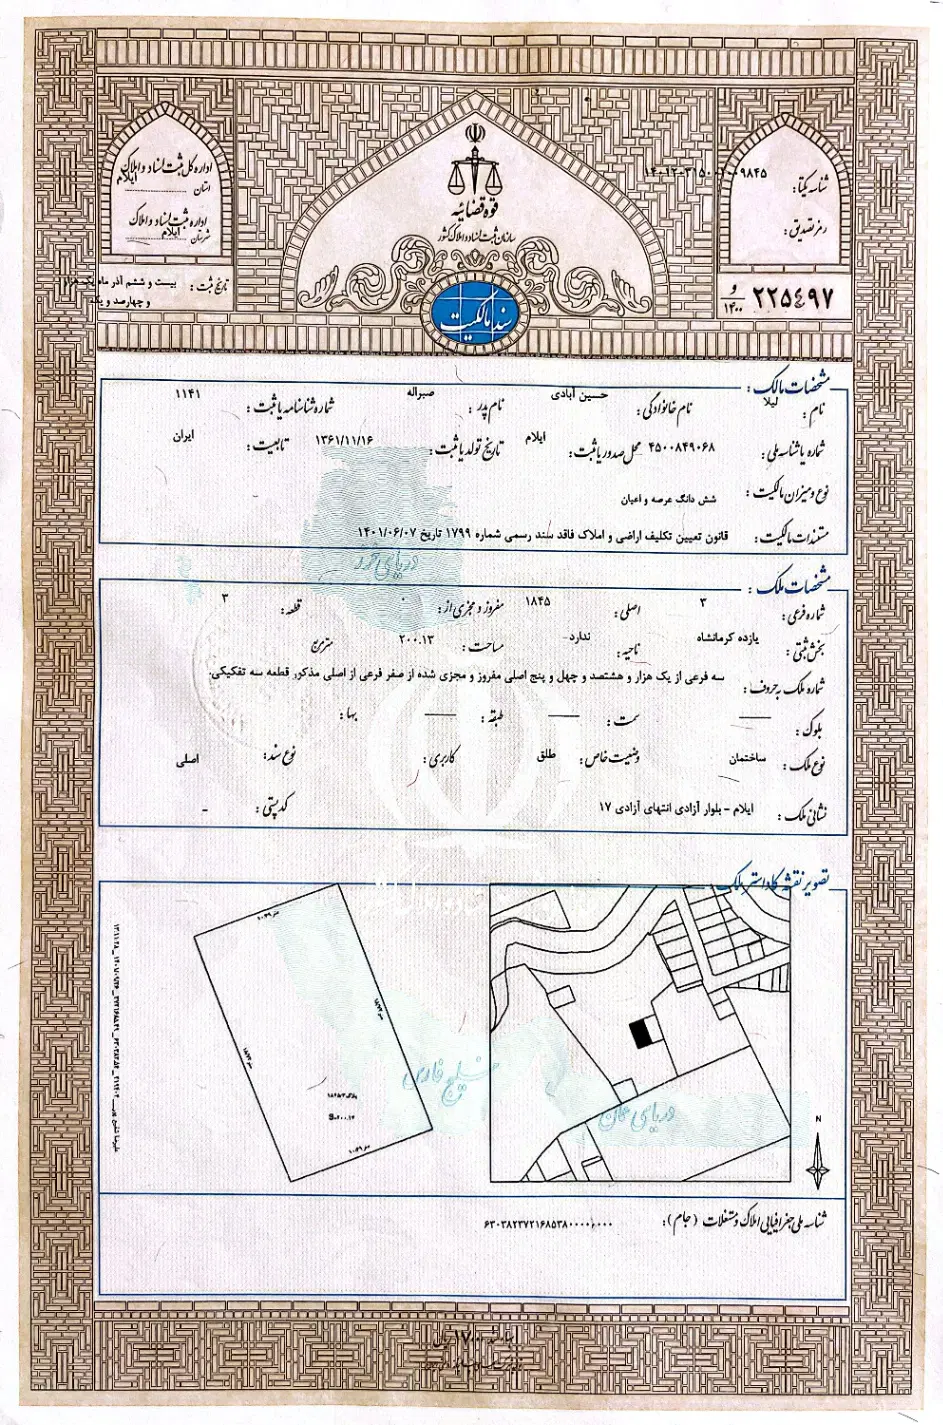 قوه قضائیه
سازمان ثبت اسناد و املاک کشور
سند مالکیت
شناسه یکتا:
رمز تصدیق:
۲۲۵۴۹۷ و ۱۴۰۰
اداره کل ثبت اسناد و املاک
استان ایلام
اداره ثبت اسناد و املاک
شهرستان ایلام
تاریخ ثبت: بیست و ششم آذر ماه یک هزار
و چهارصد و یک
مشخصات مالک:
نام: لیلا نام خانوادگی: حسین آبادی نام پدر: صبراله شماره شناسنامه یا ثبت: ۱۱۴۱
شماره یا شناسه ملی: ۴۵۰۰۸۴۹۰۶۸ محل صدور یا ثبت: ایلام تاریخ تولد یا ثبت: ۱۳۶۱/۱۱/۱۶ تابعیت: ایران
نوع و میزان مالکیت: شش دانگ عرصه و اعیان
مستندات مالکیت: قانون تعیین تکلیف اراضی و املاک فاقد سند رسمی شماره ۱۷۹۹ تاریخ ۱۴۰۱/۰۶/۰۷
دریای خزر
مشخصات ملک:
شماره فرعی: ۳ اصلی: ۱۸۴۵ مفروز و مجزی از: ۰ قطعه: ۳
بخش ثبتی: یازده کرمانشاه ناحیه: ندارد- مساحت: ۲۰۰.۱۳ مترمربع
شماره ملک به حروف: سه فرعی از یک هزار و هشتصد و چهل و پنج اصلی مفروز و مجزی شده از صفر فرعی از اصلی مذکور قطعه سه تفکیکی.
بلوک: —— سمت: —— طبقه: —— بها:
نوع ملک: ساختمان وضعیت خاص: طلق کاربری: نوع سند: اصلی
نشانی ملک: ایلام - بلوار آزادی انتهای آزادی ۱۷ کدپستی: -
تصویر نقشه کاداستر ملک
خلیج فارس
دریای عمان
N
شناسه ملی جغرافیایی املاک و مستغلات (جام): ۶۳۰۳۸۲۳۷۲۱۶۸۵۳۸۰۰۰۰۰,۰۰۰